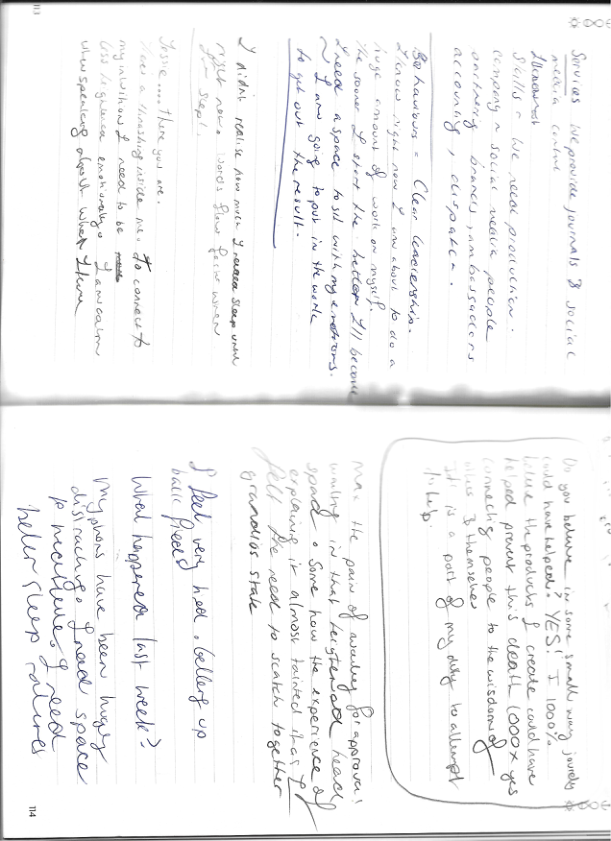 113
Services We provide journals & social
media content
Skills - We need production.
company - social media people
accounting, dispatch.
Behaviours - Clear leadership.
I know right now I am about to do a
huge amount of work on myself.
The sooner I start the better I'll become
I need a space to sit with my emotions.
I am going to put in the work
to get out the result.
I didn't realise how much I need sleep until
right now. Words flew faint when
I'm sleep!
Tessie.... there you are.
There's a thrashing inside me to connect to
my intuition I need to be
less sentence emotionally. I am calm
when speaking about what I think
Do you believe in some small way journals
could have helped? YES! I 1000%
believe the products I create could have
helped prevent this death 1000x yes
connecting people to the wisdom of
allies & themselves
It is a part of my duty to attempt
to help.
was the pain of waiting for approval
waiting in that heightened head
space. Some how the experience of
explaining it almost tainted it as I
fell the need to scratch together
grandios state
I feel very tired. Getting up
ball freed
What happened last week?
My phone have been hugely
distracting. I need space
to meditate. I need
better sleep routines
114